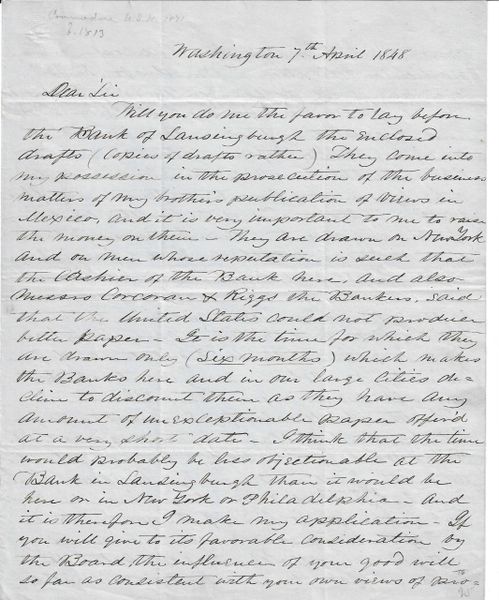 Commodore U.S.N.
b. 1813
Washington 7th April 1848
Dear Sir
Will you do me the favor to lay before
the Bank of Lansingburgh the enclosed
drafts (copies of drafts rather) They come into
my possession in the prosecution of the business
matters of my brothers publication of views in
Mexico, and it is very important to me to raise
the money on them - They are drawn on New York
and on men whose reputation is such that
the Cashier of the Bank here, and also
Messrs Corcoran & Riggs the Bankers, said
that the United States could not produce
better paper - It is the time for which they
are drawn only (six months) which makes
the Banks here and in our large Cities de-
cline to discount them as they have any
amount of unexceptionable paper offer'd
at a very short date - I think that the time
would probably be less objectionable at the
Bank in Lansingburgh than it would be
here or in New York or Philadelphia - And
it is therefore I make my application - If
you will give to its favorable consideration by
the Board the influence of your good will
so far as consistent with your own views of pro-